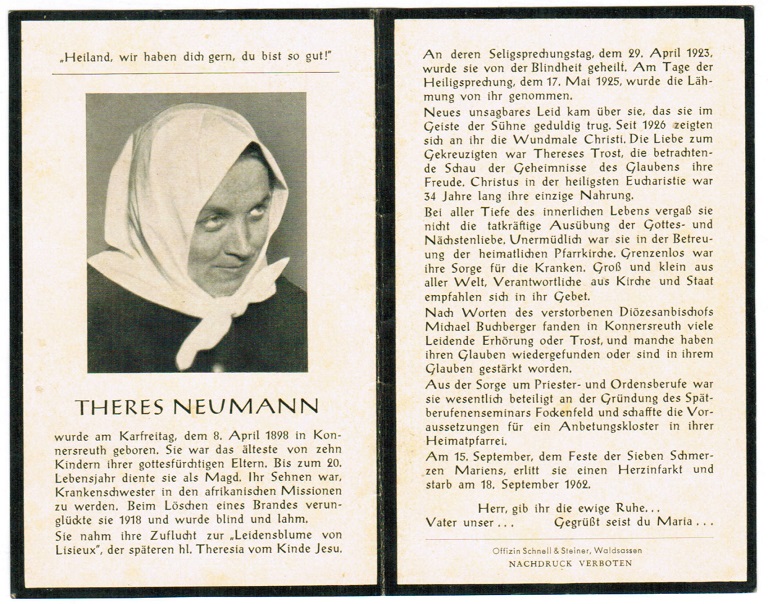 „Heiland, wir haben dich gern, du bist so gut!"
THERES NEUMANN
wurde am Karfreitag, dem 8. April 1898 in Kon-
nersreuth geboren. Sie war das älteste von zehn
Kindern ihrer gottesfürchtigen Eltern. Bis zum 20.
Lebensjahr diente sie als Magd. Ihr Sehnen war,
Krankenschwester in den afrikanischen Missionen
zu werden. Beim Löschen eines Brandes verun-
glückte sie 1918 und wurde blind und lahm.
Sie nahm ihre Zuflucht zur „Leidensblume von
Lisieux", der späteren hl. Theresia vom Kinde Jesu.
An deren Seligsprechungstag, dem 29. April 1923,
wurde sie von der Blindheit geheilt. Am Tage der
Heiligsprechung, dem 17. Mai 1925, wurde die Läh-
mung von ihr genommen.
Neues unsagbares Leid kam über sie, das sie im
Geiste der Sühne geduldig trug. Seit 1926 zeigten
sich an ihr die Wundmale Christi. Die Liebe zum
Gekreuzigten war Thereses Trost, die betrachten-
de Schau der Geheimnisse des Glaubens ihre
Freude. Christus in der heiligsten Eucharistie war
34 Jahre lang ihre einzige Nahrung.
Bei aller Tiefe des innerlichen Lebens vergaß sie
nicht die tatkräftige Ausübung der Gottes- und
Nächstenliebe. Unermüdlich war sie in der Betreu-
ung der heimatlichen Pfarrkirche. Grenzenlos war
ihre Sorge für die Kranken. Groß und klein aus
aller Welt, Verantwortliche aus Kirche und Staat
empfahlen sich in ihr Gebet.
Nach Worten des verstorbenen Diözesanbischofs
Michael Buchberger fanden in Konnersreuth viele
Leidende Erhörung oder Trost, und manche haben
ihren Glauben wiedergefunden oder sind in ihrem
Glauben gestärkt worden.
Aus der Sorge um Priester- und Ordensberufe war
sie wesentlich beteiligt an der Gründung des Spät-
berufenenseminars Fockenfeld und schaffte die Vor-
aussetzungen für ein Anbetungskloster in ihrer
Heimatpfarrei.
Am 15. September, dem Feste der Sieben Schmer-
zen Mariens, erlitt sie einen Herzinfarkt und
starb am 18. September 1962.
Herr, gib ihr die ewige Ruhe...
Vater unser... Gegrüßt seist du Maria...
Offizin Schnell & Steiner, Waldsassen
NACHDRUCK VERBOTEN